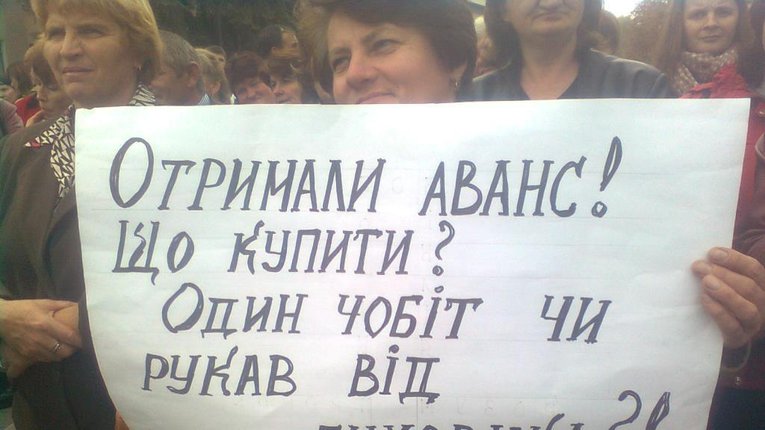 Отримали аванс!
Що купити?
Один чобіт чи
рукав від
?!